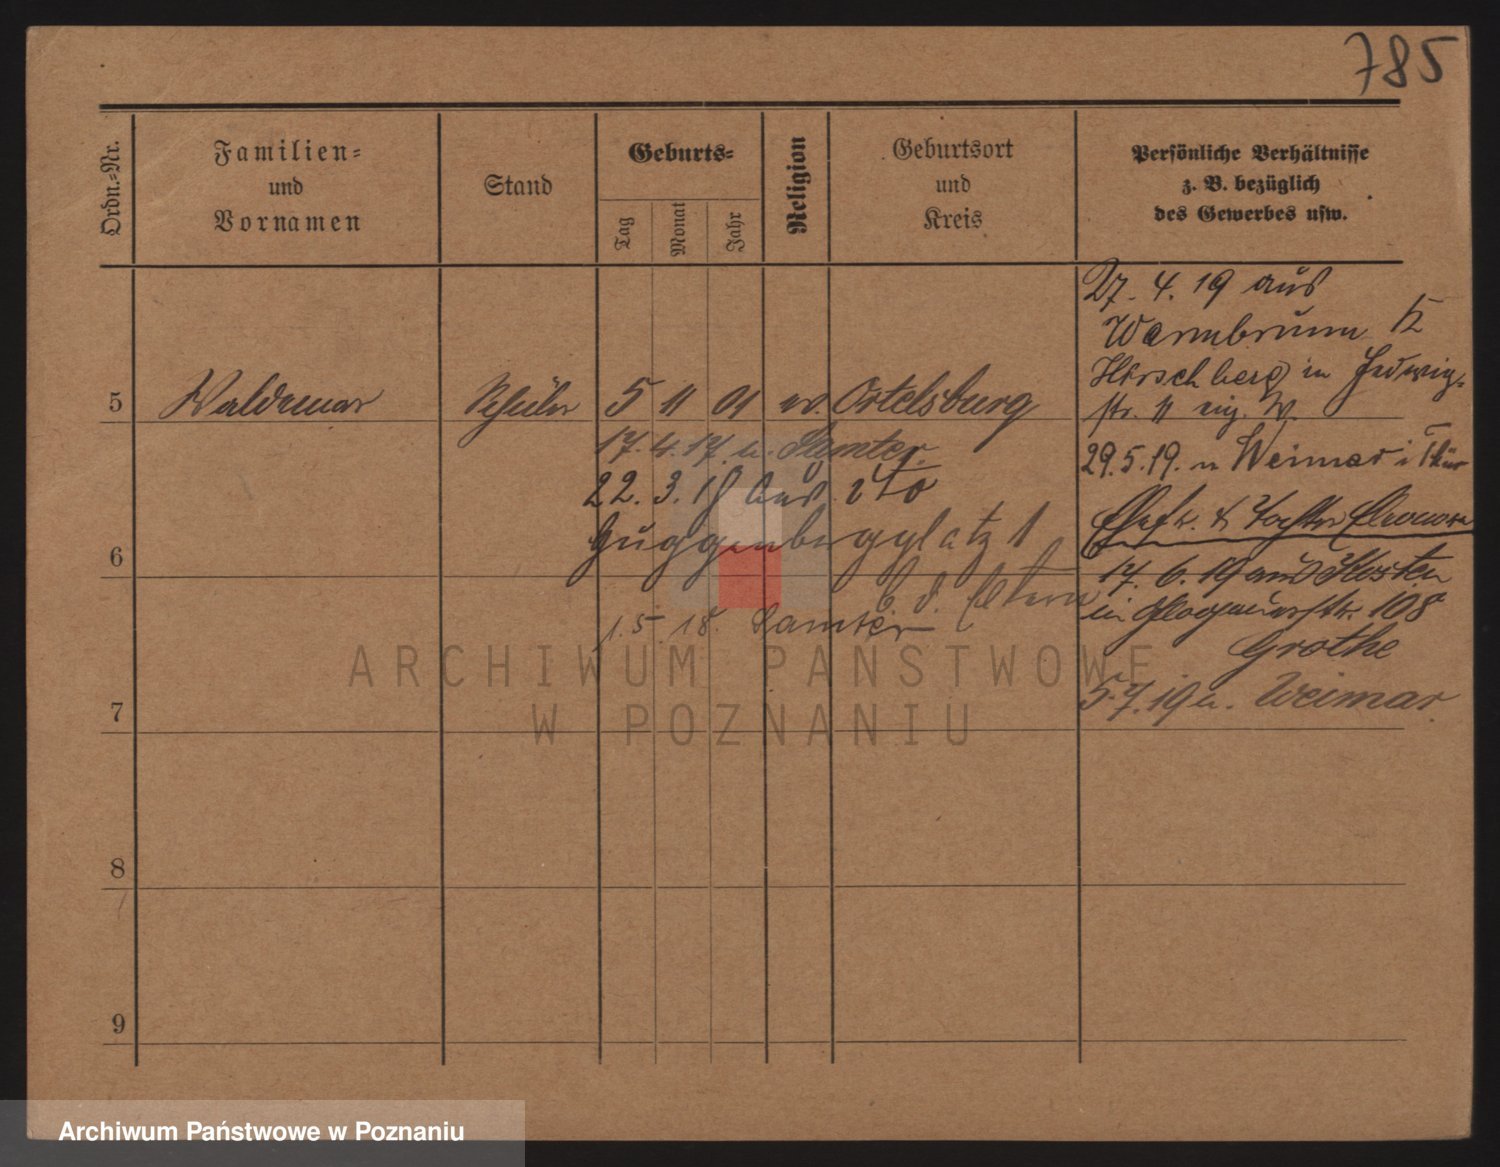 785
Ordn.-Nr.
Familien-
und
Vornamen
Stand
Geburts-
Tag
Monat
Jahr
Religion
Geburtsort
und
Kreis
Persönliche Verhältnisse
z. B. bezüglich
des Gewerbes usw.
27. 4. 19 aus
Warmbrunn K
Hirschberg in Hedwig-
str. 11 eig. W.
5 Waldemar Schüler 5 11 01 ev. Ortelsburg
17. 4. 17. n. Samter.
29. 5. 19. n Weimar i Thür
22. 3. 18 aus dto
Guggenbergplatz 1
Ehefr. & Tochter Eleonore
6
17. 6. 19 aus Kosten
b. d. Eltern
in Glogauerstr. 108
1. 5. 18. Samter
Grothe
5. 7. 19 n. Weimar.
7
8
9
ARCHIWUM PAŃSTWOWE
W POZNANIU
Archiwum Państwowe w Poznaniu